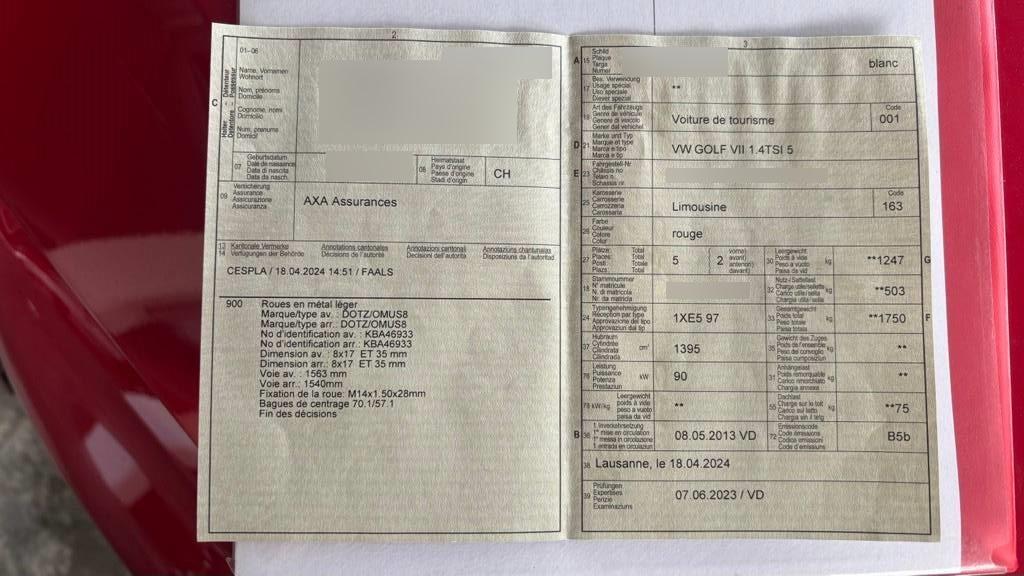 2
01-06
Name, Vornamen
Wohnort
Nom, prénoms
Domicile
Cognome, nomi
Domicilio
Num, prenums
Domicil
C
07
Geburtsdatum
Date de naissance
Data di nascita
Data da nasch.
08
Heimatstaat
Pays d'origine
Paese d'origine
Stadi d'origin
CH
09
Versicherung
Assurance
Assicurazione
Assicuranza
AXA Assurances
13 Kantonale Vermerke Annotations cantonales Annotazioni cantonali Annotaziuns chantunalas
14 Verfügungen der Behörde Décisions de l'autorité Decisioni dell'autorità Disposiziuns da l'autoritad
CESPLA / 18.04.2024 14:51 / FAALS
900 Roues en métal léger
Marque/type av. : DOTZ/OMUS8
Marque/type arr.: DOTZ/OMUS8
No d'identification av. : KBA46933
No d'identification arr.: KBA46933
Dimension av. : 8x17 ET 35 mm
Dimension arr.: 8x17 ET 35 mm
Voie av. : 1563 mm
Voie arr.: 1540mm
Fixation de la roue: M14x1.50x28mm
Bagues de centrage 70.1/57.1
Fin des décisions
3
A 15
Schild
Plaque
Targa
Numer
blanc
17
Bes. Verwendung
Usage spécial
Uso speciale
Diever spezial
**
Art des Fahrzeugs
Genre de véhicule
Genere di veicolo
Gener dal vehichel
Voiture de tourisme
Code
001
D 21
Marke und Typ
Marque et type
Marca e tipo
Marca e tip
VW GOLF VII 1.4TSI 5
E 23
Fahrgestell-Nr
Châssis no
Telaio n.
Schassis nr.
25
Karosserie
Carrosserie
Carrozzeria
Carossaria
Limousine
Code
163
26
Farbe
Couleur
Colore
Colur
rouge
27
Plätze: Total
Places: Total
Posti: Totale
Plazs: Total
5
2
vorne)
avant)
anteriori)
davant)
30
Leergewicht
Poids à vide
Peso a vuoto
Paisa da vid
kg
**1247
G
18
Stammnummer
N° matricule
N. di matricola
Nr. da matricla
32
Nutz-/Sattellast
Charge utile/sellette
Carico utile/sella
Chargia utila/sella
kg
**503
24
Typengenehmigung
Réception par type
Approvazione del tipo
Approvaziun dal tip
1XE5 97
33
Gesamtgewicht
Poids total
Peso totale
Paisa totala
kg
**1750
F
37
Hubraum
Cylindrée
Cilindrata
Cilindrada
cm³
1395
35
Gewicht des Zuges
Poids de l'ensemble
Peso del convoglio
Paisa cumposiziun
kg
**
76
Leistung
Puissance
Potenza
Prestaziun
kW
90
31
Anhängelast
Poids remorquable
Carico rimorchiato
Chargia annexa
kg
**
78 kW/kg
Leergewicht
poids à vide
peso a vuoto
paisa da vid
**
55
Dachlast
Charge sur le toit
Carico sul tetto
Chargia sin il tetg
kg
**75
B 36
1. Inverkehrsetzung
1re mise en circulation
1a messa in circolazione
1. entrada en circulaziun
08.05.2013 VD
72
Emissionscode
Code émissions
Codice emissioni
Code d'emissiuns
B5b
38 Lausanne, le 18.04.2024
39
Prüfungen
Expertises
Perizie
Examinaziuns
07.06.2023 / VD